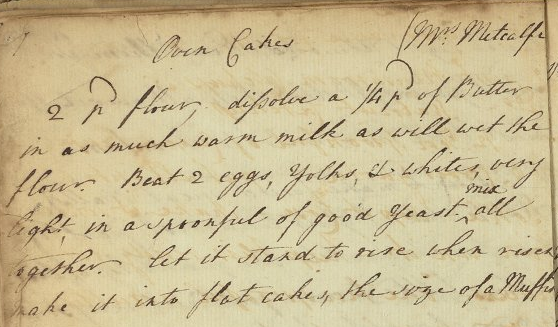 Oven Cakes (Mrs Metcalfe
2 pd flour, dissolve a 1/4 pd of Butter
in as much warm milk as will wet the
flour. Beat 2 eggs, Yolks, & whites, very
light, in a spoonful of good Yeast. mix all
together. let it stand to rise when risen
make it into flat cakes, the size of a Muffin